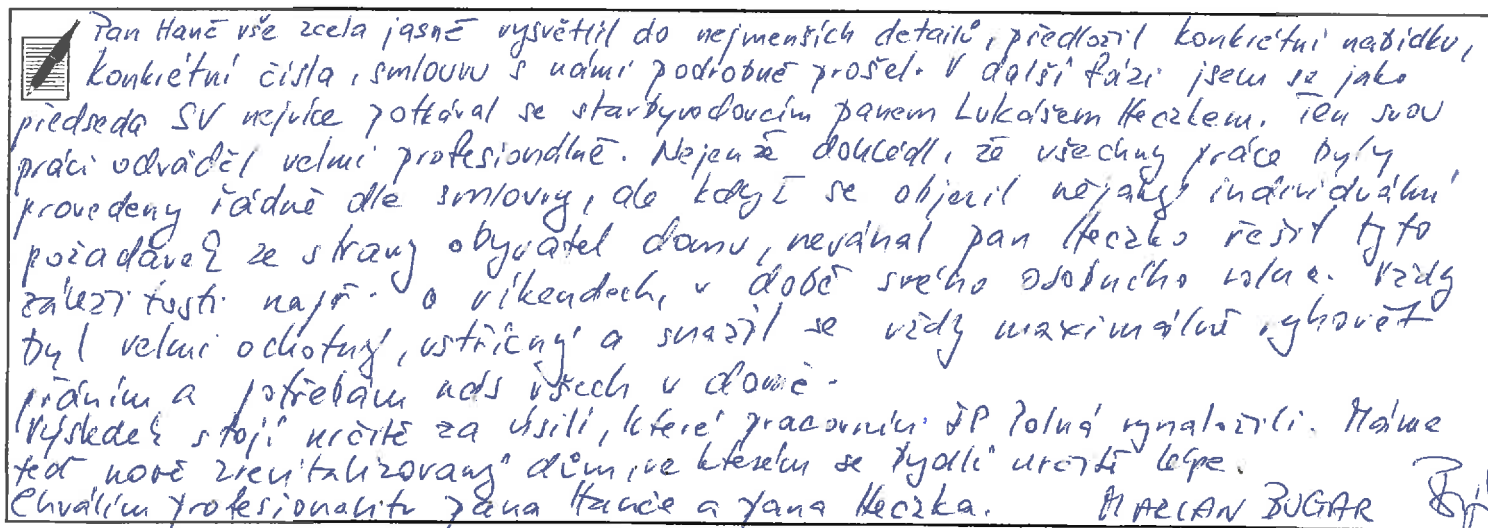 Pan Hanč vše zcela jasně vysvětlil do nejmenších detailů, předložil konkrétní nabídku,
konkrétní čísla, smlouvu s námi podrobně prošel. V další fázi jsem se jako
předseda SV nejvíce potkával se stavbyvedoucím panem Lukášem Heczkem. Ten svou
práci odváděl velmi profesionálně. Nejenže dohlédl, že všechny práce byly
provedeny řádně dle smlouvy, ale když se objevil nějaký individuální
požadavek ze strany obyvatel domu, neváhal pan Heczko řešit tyto
záležitosti např. o víkendech, v době svého osobního volna. Vždy
byl velmi ochotný, vstřícný a snažil se vždy maximálně vyhovět
přáním a potřebám nás všech v domě.
Výsledek stojí určitě za úsilí, které pracovníci SP Polná vynaložili. Máme
teď nově zrevitalizovaný dům, ve kterém se bydlí určitě lépe.
Chválím profesionalitu pana Hanče a pana Heczka. MARCAN BUGAR